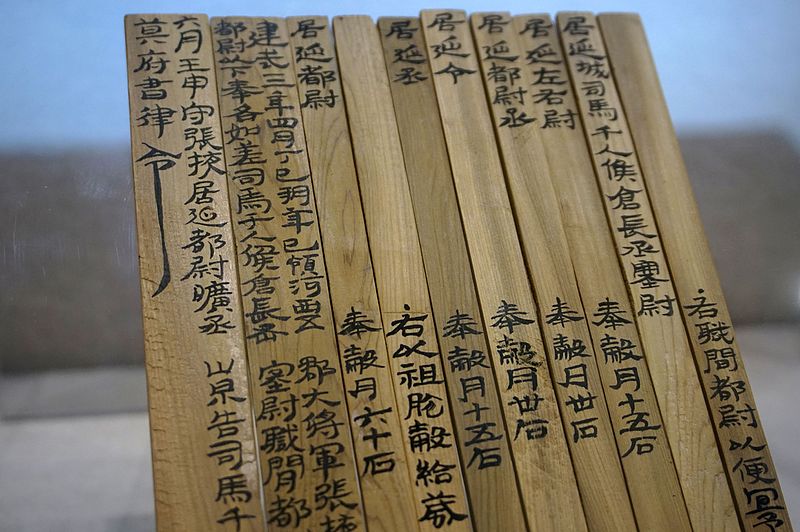 右職閒都尉以便宜予
居延城司馬千人候倉長丞塞尉
居延左右尉 奉穀月十五石
居延都尉丞 奉穀月卅石
居延令 奉穀月卅石
居延丞 奉穀月十五石
右以祖脫穀給歲
居延都尉 奉穀月六十石
建武三年四月丁巳朔辛巳領河西五郡大將軍張掖
都尉以下奉各如差司馬千人候倉長丞塞尉職閒都
六月壬申守張掖居延都尉曠丞崇告司馬千
莫府書律令